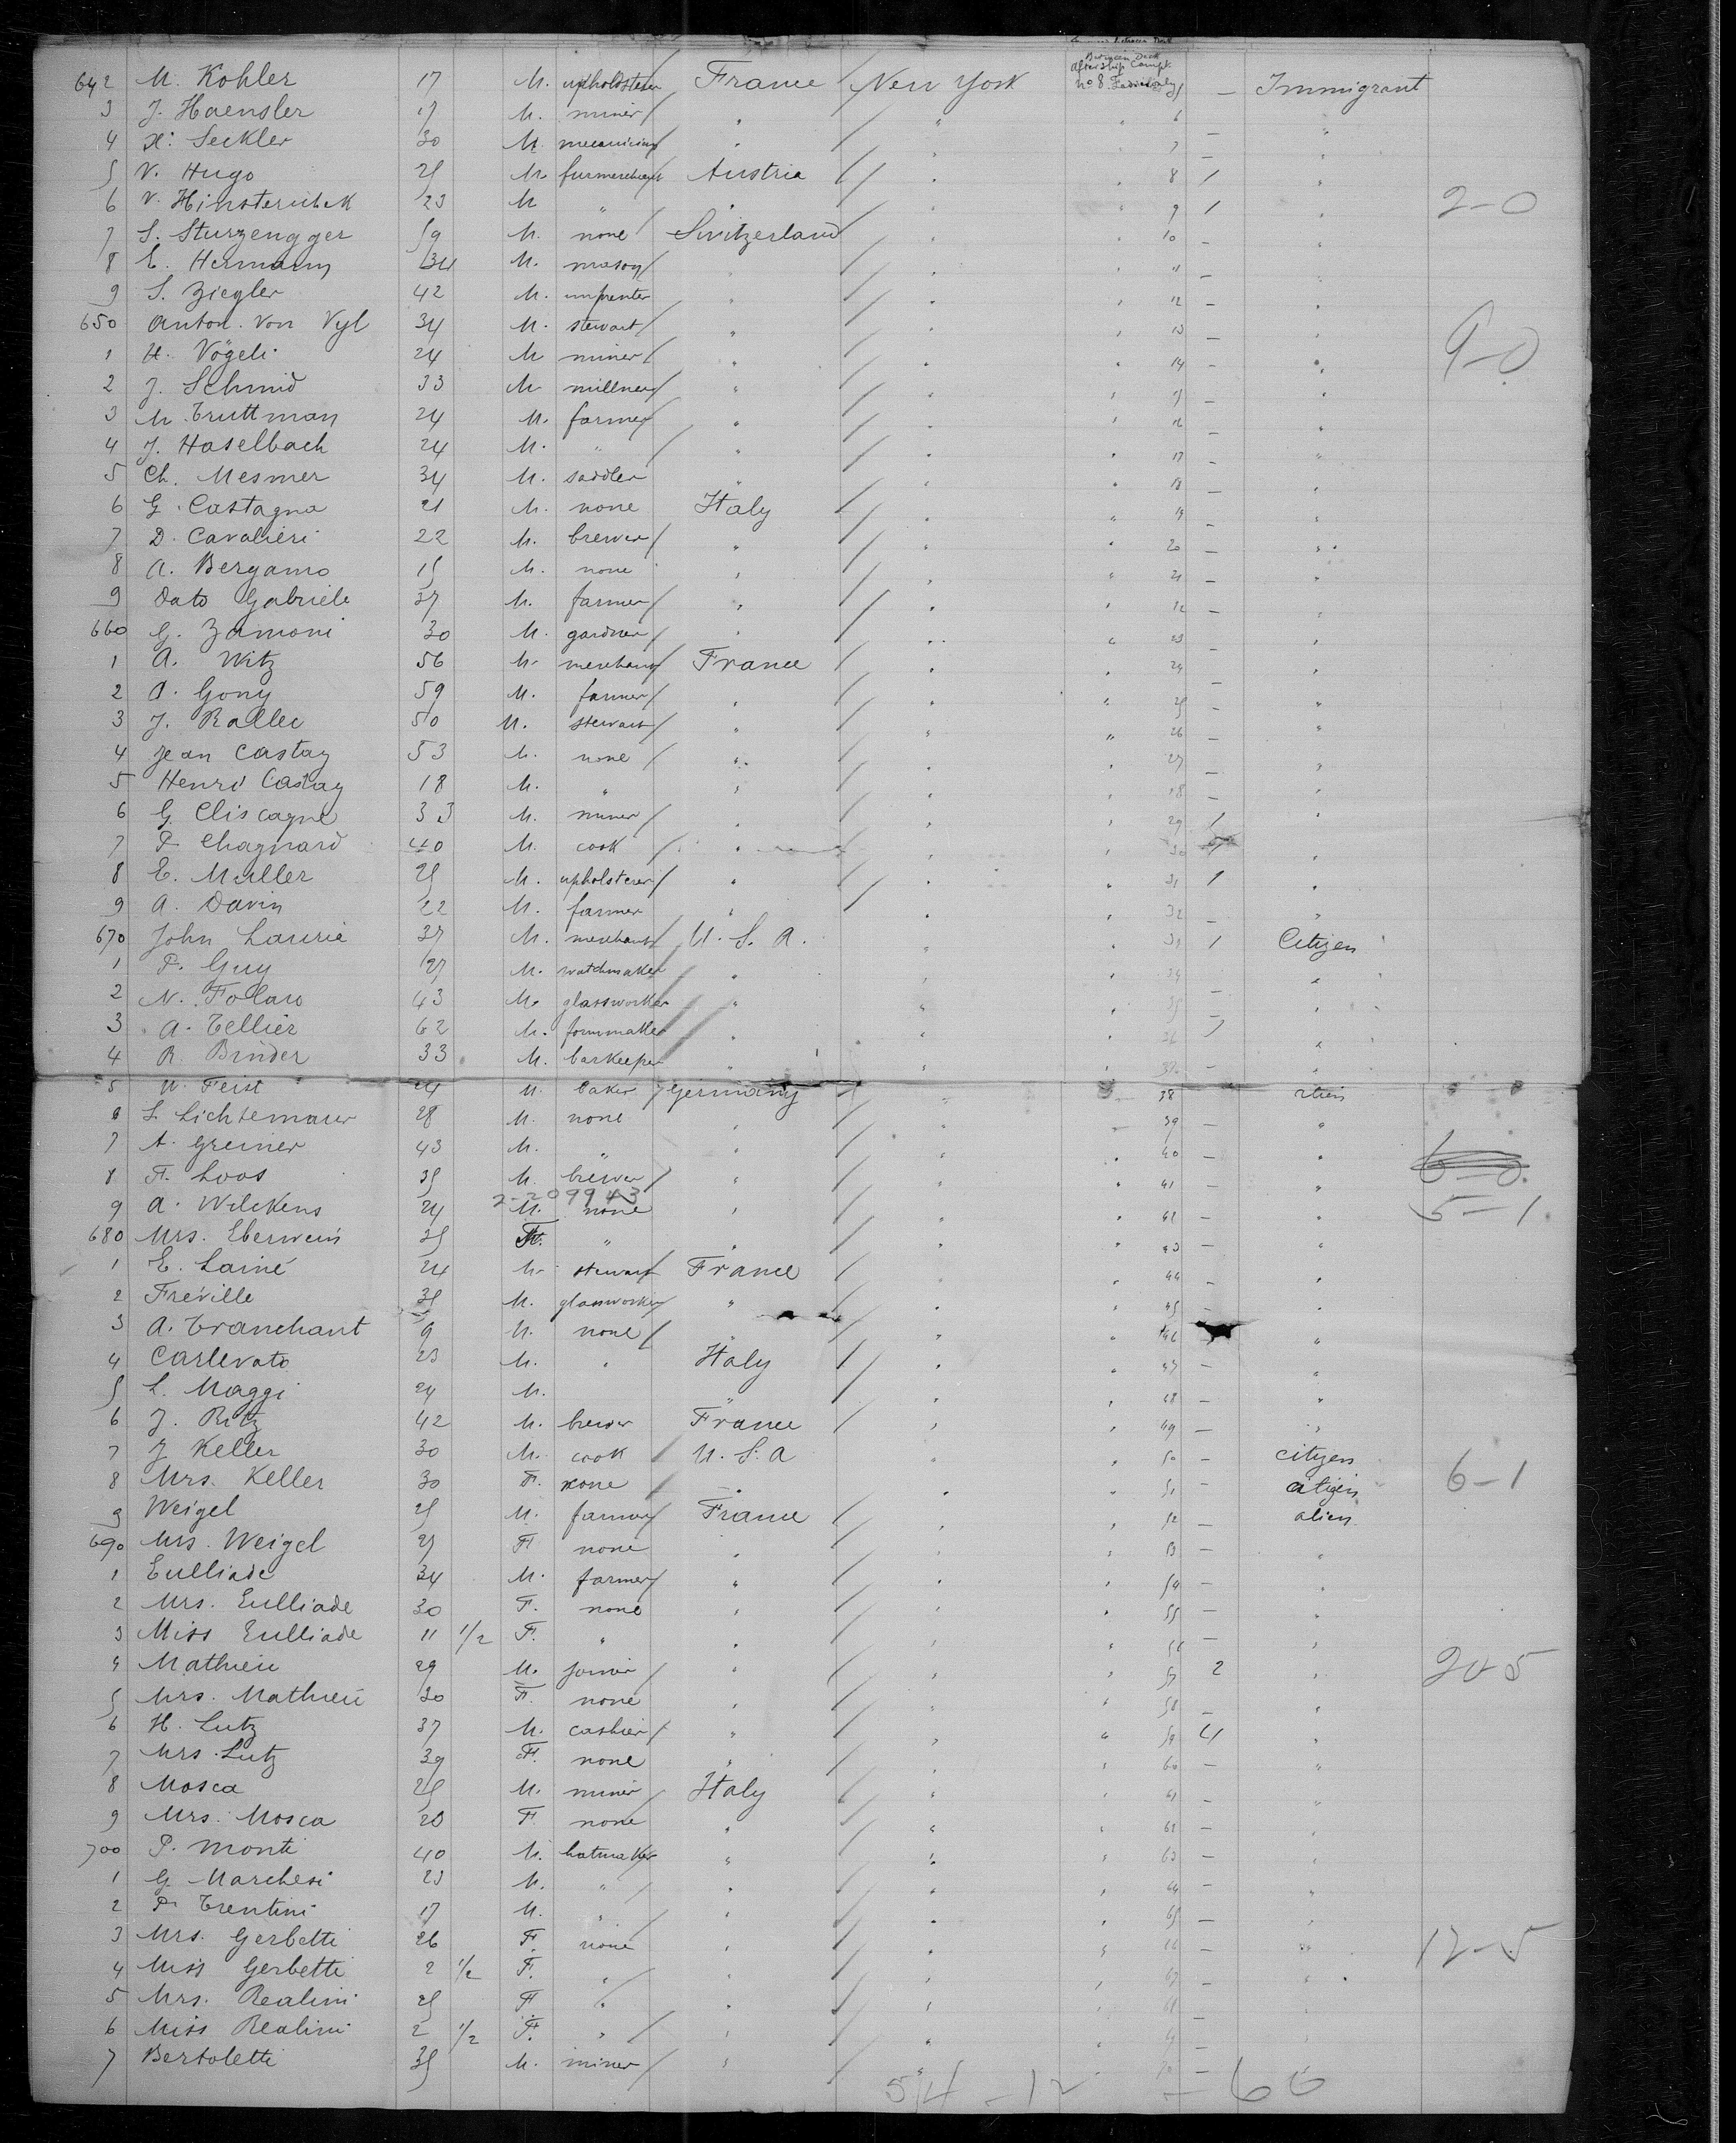 Between Deck
aftership Compt.
642 M. Kohler 17 M. upholsterer France New York No 8. 5 — Immigrant
3 J. Haensler 17 M. miner " " " 6 "
4 X. Seckler 30 M. " " " 7 — "
5 V. Hugo 25 M. furmerchant Austria " " 8 1 "
6 V. 23 M " " " " 9 1 " 2-0
7 S. Sturzengger 59 M. none Switzerland " " 10 — "
8 E. Hermann 34 M. mason " " " 11 — "
9 S. Ziegler 42 M. " " " 12 — "
650 Anton. Von Vyl 34 M. stewart " " " 13 — " 9-0
1 H. Vögeli 24 M miner " " " 14 — "
2 J. Schmid 33 M. millner " " " 15 — "
3 M. Truttman 24 M. farmer " " " 16 — "
4 J. Haselbach 24 M. " " " " 17 — "
5 Ch. Mesmer 34 M. saddler " " " 18 — "
6 G. Castagna 21 M. none Italy " " 19 — "
7 D. Cavalieri 22 M. brewer " " " 20 — "
8 A. Bergamo 15 M. none " " " 21 — "
9 Dato Gabriele 37 M. farmer " " " 22 — "
660 G. Zamoni 30 M. gardner " " " 23 — "
1 A. Witz 56 M. merchant France " " 24 — "
2 A. Gony 59 M. farmer " " " 25 — "
3 J. Rallec 50 M. stewart " " " 26 — "
4 Jean Castay 53 M. none " " " 27 — "
5 Henri Castay 18 M. " " " " 28 — "
6 G. Cliscagne 33 M. miner " " " 29 1 "
7 P. Chagnard 40 M. cook " " " 30 "
8 E. Muller 25 M. upholsterer " " " 31 1 "
9 A. Davin 22 M. farmer " " " 32 — "
670 John Laurie 37 M. merchant U. S. A. " " 33 1 Citizen
1 P. Guy 27 M. watchmaker " " " 34 — "
2 N. Folaro 43 M. glassworker " " " 35 — "
3 A. Tellier 62 M. formmaker " " " 36 1 "
4 R. Brüder 33 M. barkeeper " " " 37 — "
5 W. Feist 24 M. baker Germany " " 38 alien
6 S. 28 M. none " " " 39 — "
7 A. Greiner 43 M. " " " " 40 — " 6-0
8 F. Loos 35 M. brewer " " " 41 — "
2-209943
9 A. Wilckens 24 M. none " " " 42 — " 5-1
680 Mrs. Eberwein 35 F. " " " " 43 — "
1 E. Lainé 24 M. stewart France " " 44 — "
2 Fréville 35 M. glassworker " " " 45 — "
3 A. Tranchant 9 M. none " " " 46 "
4 Carlevato 23 M. " Italy " " 47 — "
5 L. Maggi 24 M. " " " 48 — "
6 J. Ritz 42 M. brewer France " " 49 — "
7 J Keller 30 M. cook U. S. A " " 50 — citizen
8 Mrs. Keller 30 F. none " " " 51 — citizen 6-1
9 Weigel 25 M. farmer France " " 52 — alien
690 Mrs. Weigel 27 F none " " " 53 — "
1 Eulliade 34 M. farmer " " " 54 — "
2 Mrs. Eulliade 30 F. none " " " 55 — "
3 Miss Eulliade 11 1/2 F. " " " " 56 — "
4 Mathieu 29 M. joiner " " " 57 2 " 20-5
5 Mrs. Mathieu 30 F. none " " " 58 — "
6 H. Lutz 37 M. cashier " " " 59 4 "
7 Mrs. Lutz 39 F. none " " " 60 — "
8 Mosca 25 M. miner Italy " " 61 — "
9 Mrs. Mosca 20 F. none " " " 62 — "
700 P. Monti 40 M. hatmaker " " " 63 — "
1 G Marchesi 23 M. " " " " 64 — "
2 P. Trentini 17 M. " " " " 65 — "
3 Mrs. Gerbetti 26 F. none " " " 66 — " 12-5
4 Miss Gerbetti 2 1/2 F. " " " " 67 — "
5 Mrs. Realini 25 F " " " " 68 — "
6 Miss Realini 2 1/2 F. " " " " 69 — "
7 Bertoletti 35 M. miner " " " 70 —
54 - 12 - 66